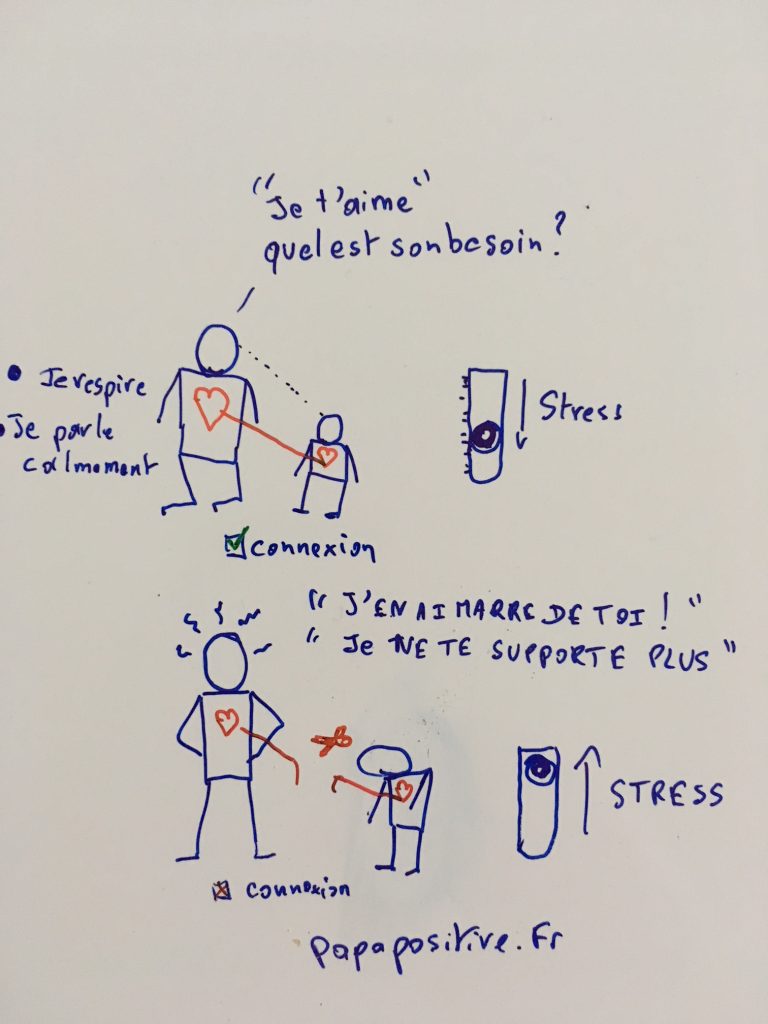 "Je t'aime"
quel est son besoin ?
• Je respire
• Je parle
calmement
Stress
connexion
" J'EN AI MARRE DE TOI ! "
" Je NE TE SUPPORTE PLUS "
STRESS
connexion
papapositive.fr